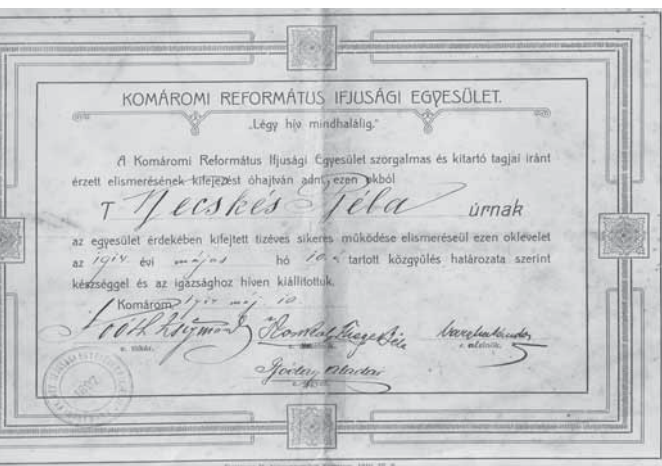 KOMÁROMI REFORMÁTUS IFJUSÁGI EGYESÜLET.
„Légy hiv mindhalálig.”
A Komáromi Református Ifjusági Egyesület szorgalmas és kitartó tagjai iránt
érzett elismerésének kifejezést óhajtván adni, ezen okból
T Kecskés Béla úrnak
az egyesület érdekében kifejtett tizéves sikeres működése elismeréseül ezen oklevelet
az 1914 évi május hó 10.-i tartott közgyűlés határozata szerint
készséggel és az igazsághoz hiven kiállitottuk.
Komárom, 1914 máj. 10.
Tóóth Zsigmond